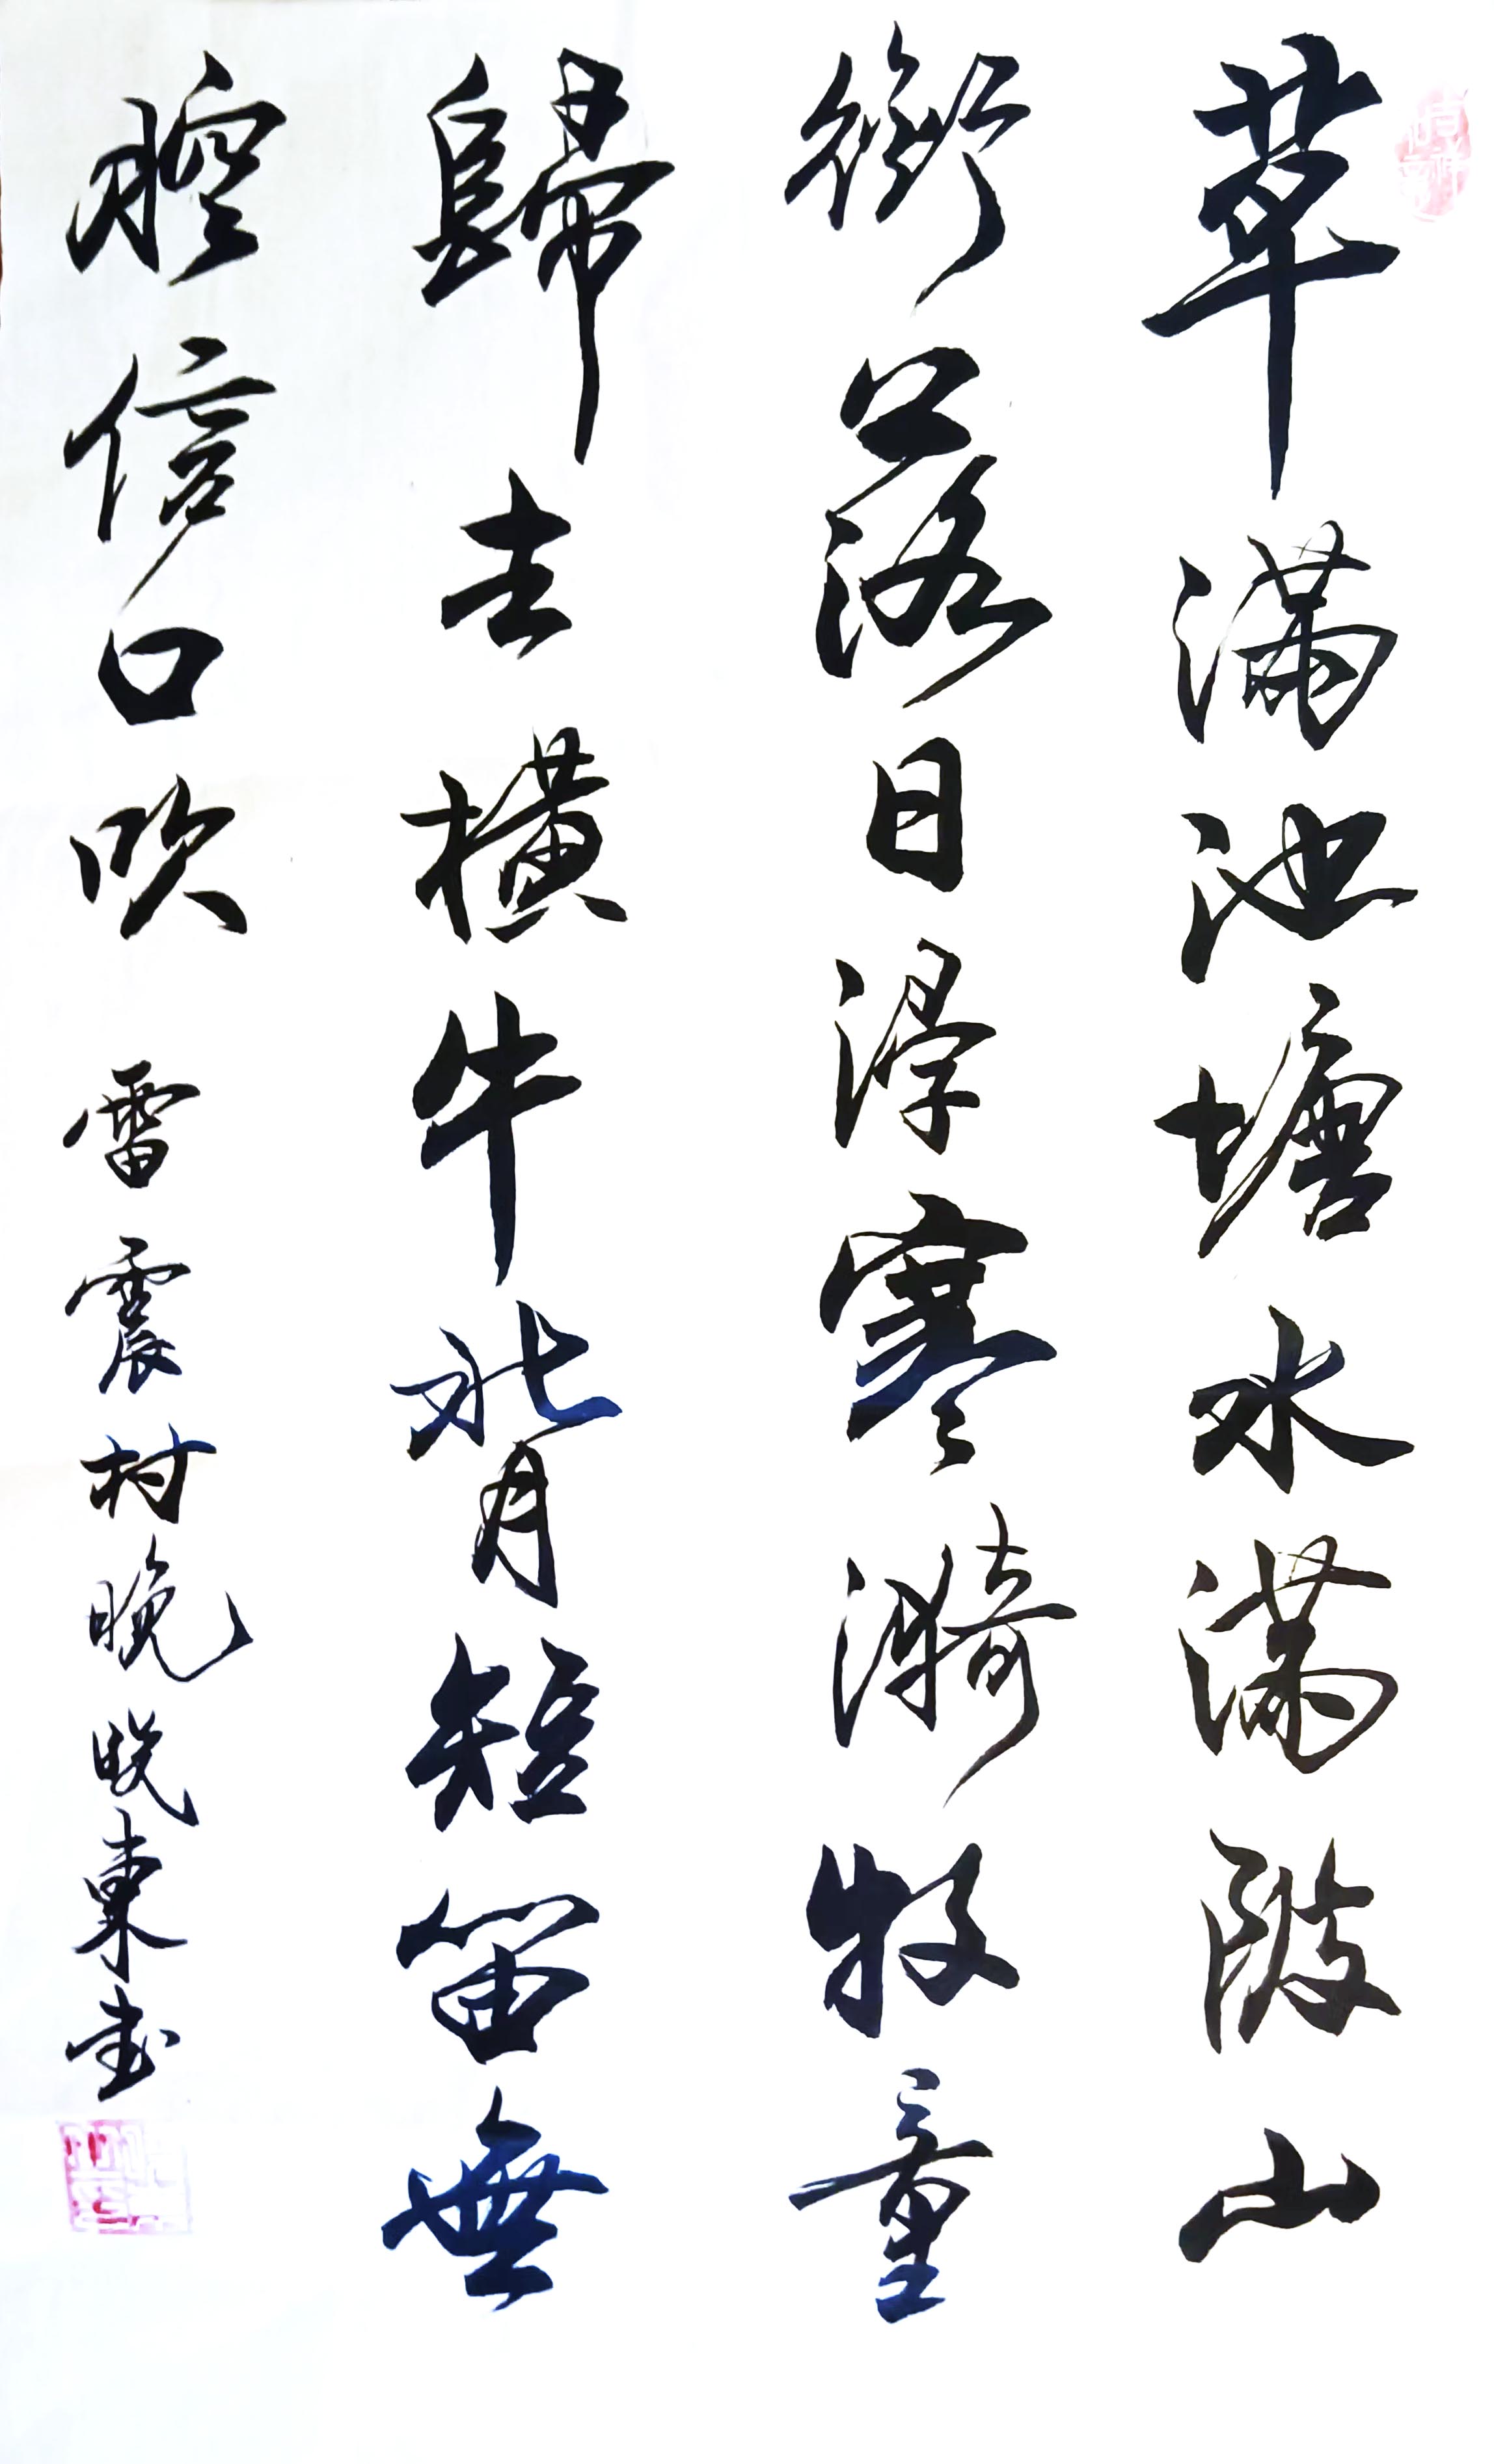 草滿池塘水滿陂山
銜落日浸寒漪牧童
歸去橫牛背短笛無
腔信口吹 雷震村晚 晓東書